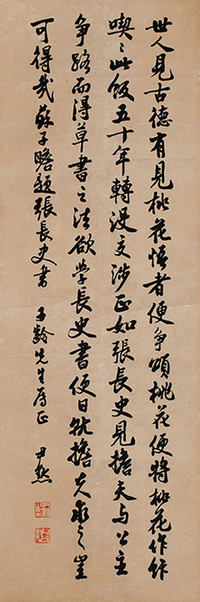 世人見古德有見桃花悟者便爭頌桃花便將桃花作飯
喫喫此飯五十年轉沒交涉正如張長史見擔夫與公主
爭路而得草書之法欲學長史書便日就擔夫求之豈
可得哉蘇子瞻題張長史書 子齡先生屬正 尹默